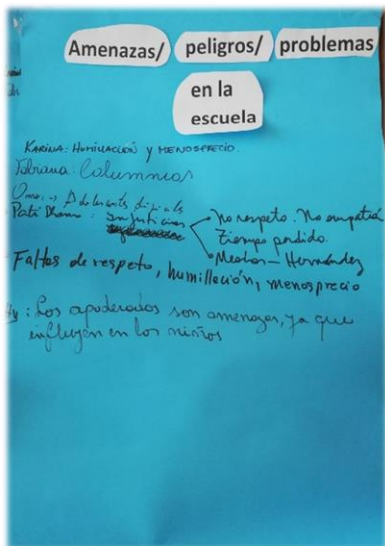 Amenazas/ peligros/ problemas
en la
escuela
KARINA: HUMILLACIÓN Y MENOSPRECIO.
Columnias
Adolescentes
Pati : Injusticias
No respeto. No empatía
Tiempo perdido.
Medios - Hernández
Faltas de respeto, humillación, menosprecio
: Los apoderados son amenazas, ya que
influyen en los niños